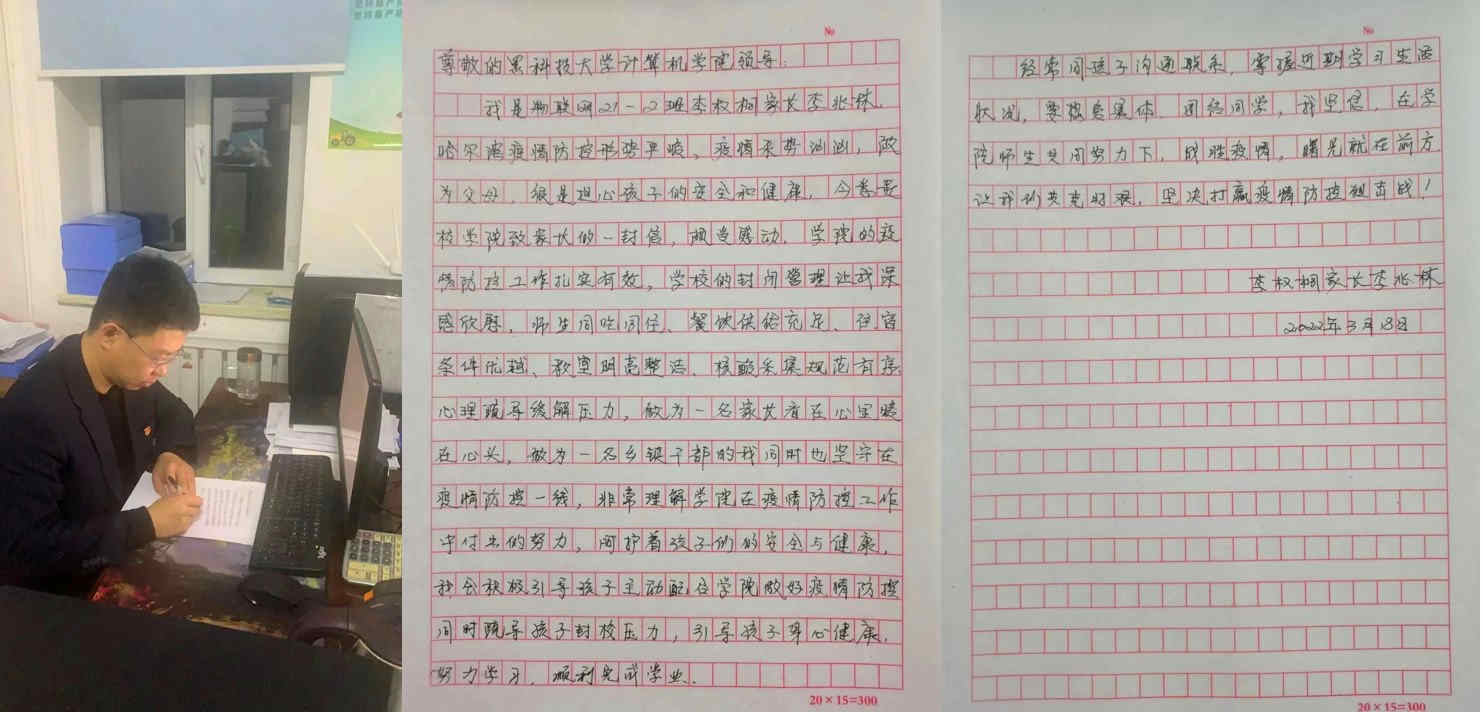 No
尊敬的黑科技大学计算机学院领导:
我是物联网21-2班李权桐家长李兆林.
哈尔滨疫情防控形势严峻,疫情来势汹汹,做
为父母,很是担心孩子的安全和健康,今奉贵
校学院致家长的一封信,相当感动.学院的疫
情防控工作扎实有效,学校的封闭管理让我深
感欣慰,师生同吃同住、餐饮供给充足、住宿
条件优越、教室明亮整洁、核酸采集规范有序
心理疏导缓解压力,做为一名家长看在心里暖
在心头,做为一名乡镇干部的我同时也坚守在
疫情防控一线,非常理解学院在疫情防控工作
中付出的努力,呵护着孩子们的安全与健康,
我会积极引导孩子主动配合学院做好疫情防控
同时疏导孩子封校压力,引导孩子身心健康,
努力学习,顺利完成学业.
20×15=300
No
经常同孩子沟通联系,掌握近期学习生活
状况,要积极集体,团结同学,我坚信,在学
院师生共同努力下,战胜疫情,曙光就在前方
让我们共克时艰,坚决打赢疫情防控阻击战!
李权桐家长李兆林
2022年3月18日
20×15=300